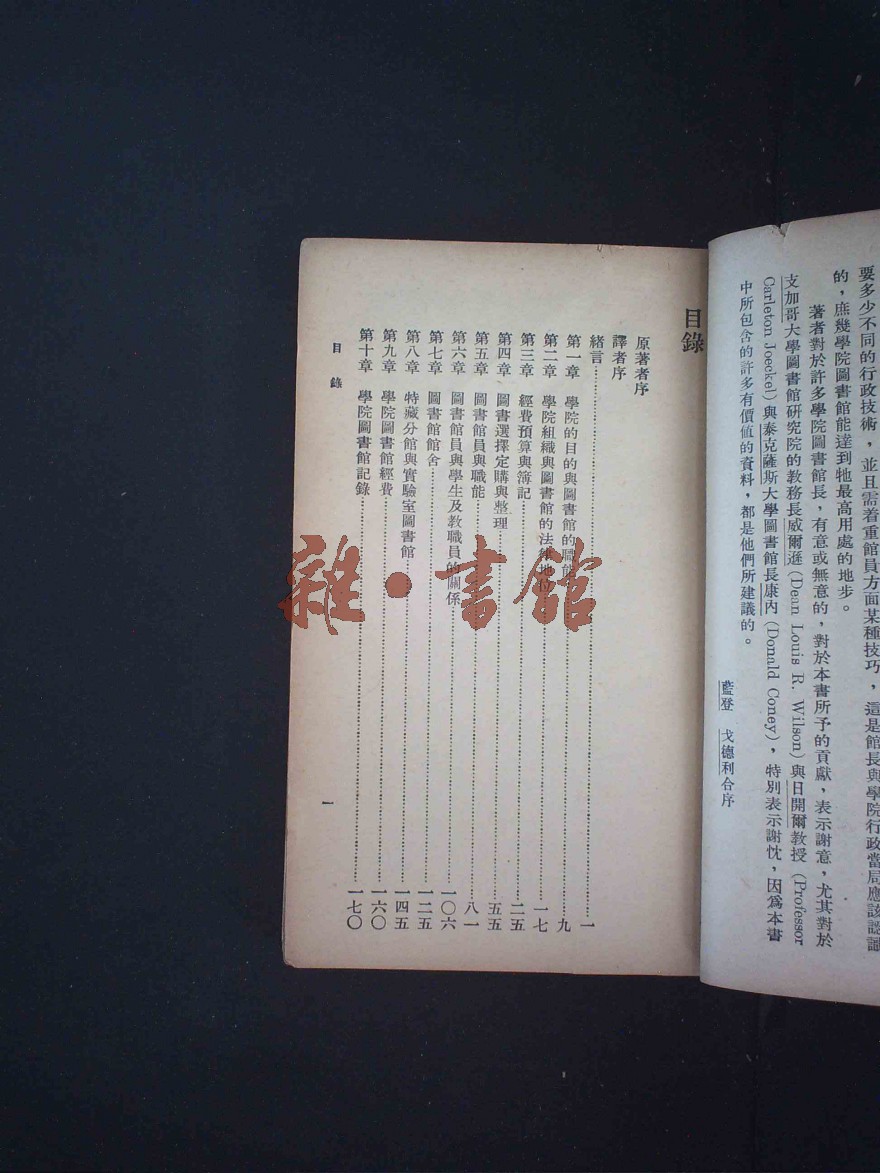 要多少不同的行政技術，並且需着重館員方面某種技巧，這是館長與學院行政當局應該認識
的，庶幾學院圖書館能達到牠最高用處的地步。
著者對於許多學院圖書館長，有意或無意的，對於本書所予的貢獻，表示謝意，尤其對於
支加哥大學圖書館研究院的教務長威爾遜(Dean Louis R. Wilson)與日開爾教授(Professor
Carleton Joeckel)與泰克薩斯大學圖書館長康內(Donald Coney)，特別表示謝忱，因爲本書
中所包含的許多有價值的資料，都是他們所建議的。
藍登 戈德利合序
目錄
原著者序
譯者序
緒言……一
第一章 學院的目的與圖書館的職能……九
第二章 學院組織與圖書館的法律地位……一七
第三章 經費預算與簿記……二五
第四章 圖書選擇定購與整理……五五
第五章 圖書館員與職能……八一
第六章 圖書館員與學生及教職員的關係……一〇六
第七章 圖書館館舍……一二五
第八章 特藏分館與實驗室圖書館……一四五
第九章 學院圖書館經費……一六〇
第十章 學院圖書館記錄……一七〇
目錄
一
雜·書館